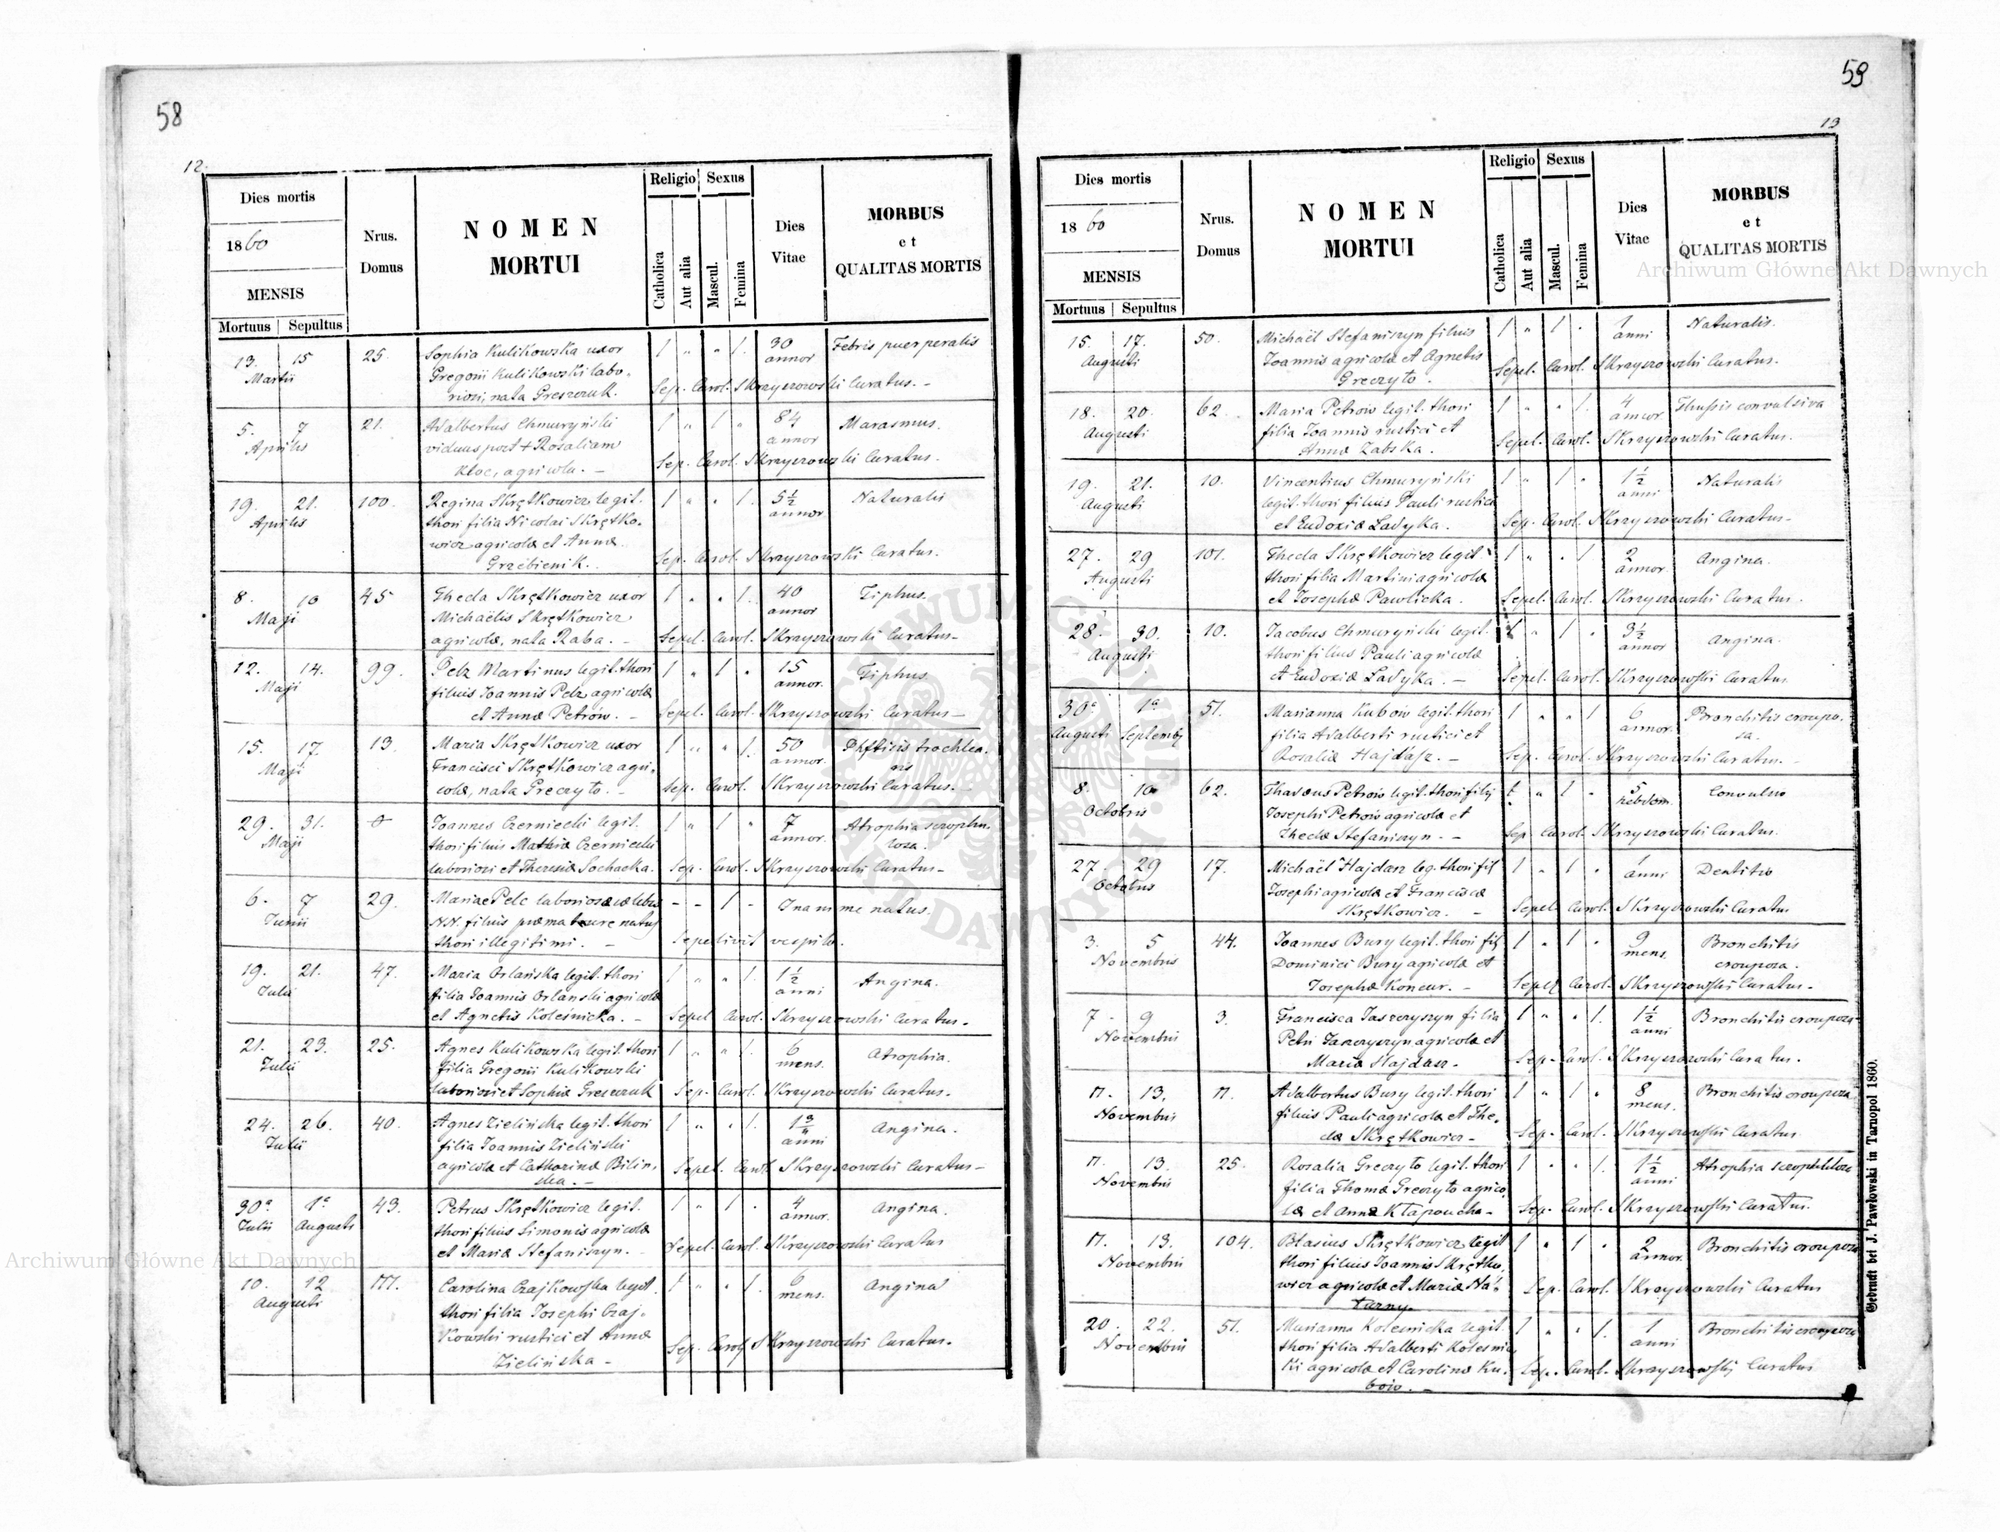 58
12.
Dies mortis
1860
MENSIS
Mortuus | Sepultus
Nrus. Domus
NOMEN MORTUI
Religio
Catholica
Aut alia
Sexus
Mascul.
Femina
Dies Vitae
MORBUS et QUALITAS MORTIS
13. 15 25. Sophia Kulikowska uxor 1 " " 1. 30 Febris puerperalis
Martii Gregorii Kulikowski labo- annor
riosi, nata Greszczuk. Sep. Carol. Skrzyszowski Curatus. -
5. 7 21. Adalbertus Chmuryński 1 " 1 " 84 Marasmus.
Aprilis viduus post + Rosaliam annor
Kloc, agricola. - Sep. Carol. Skrzyszowski Curatus.
19. 21. 100. Regina Skrętkowicz legit. 1 " " 1. 5½ Naturalis
Aprilis thori filia Nicolai Skrętko- annor
wicz agricolæ et Annæ
Grzebienik. Sep. Carol. Skrzyszowski Curatus.
8. 10 45 Thecla Skrętkowicz uxor 1 " " 1. 40 Tiphus.
Maji Michaëlis Skrętkowicz annor
agricolæ, nata Raba. - Sepel. Carol. Skrzyszowski Curatus-
12. 14. 99. Pelz Martinus legit. thori 1 " 1 " 15 Tiphus.
Maji filius Joannis Pelz agricolæ annor.
et Annæ Petrów. - Sepel. Carol. Skrzyszowski Curatus-
15. 17. 13. Maria Skrętkowicz uxor 1 " " 1. 50
Maji Francisci Skrętkowicz agri- annor.
colæ, nata Greczyło. - Sep. Carol. Skrzyszowski Curatus. -
29. 31. Joannes Czerniecki legit. 1 " 1 " 7 Atrophia scrophu-
Maji thori filius Mathiæ Czerniecki annor. losa.
laboriosi et Theresiæ Sochacka. Sep. Carol. Skrzyszowski Curatus-
6. 7 29. Mariæ Pelc laboriosæ cælebis - - 1 - Inanime natus.
Junii N.N. filius præmature natus
thori illegitimi. - Sepelivit vespilo.
19. 21. 47. Maria Orlańska legit. thori 1 " " 1. 1½ Angina.
Julii filia Joannis Orlanski agricolæ anni
et Agnetis Koleśnicka. - Sepel Carol. Skrzyszowski Curatus.
21. 23. 25. Agnes Kulikowska legit. thori 1 " " 1. 6 Atrophia.
Julii filia Gregorii Kulikowski mens.
laboriosi et Sophiæ Greszczuk Sep. Carol. Skrzyszowski Curatus.
24. 26. 40. Agnes Zielińska legit. thori 1 " " 1. Angina.
Julii filia Joannis Zieliński anni
agricolæ et Catharinæ Bilin-
ska. - Sepel. Carol Skrzyszowski Curatus-
30ª 1ª 43. Petrus Skrętkowicz legit. 1 " 1 . 4 Angina.
Julii Augusti thori filius Simonis agricolæ annor.
et Mariæ Stefaniszyn. - Sepel. Carol. Skrzyszowski Curatus
10. 12 111. Carolina Czajkowska legit. 1 " " 1. 6 Angina
Augusti thori filia Josephi Czaj- mens.
kowski rustici et Annæ
Zielińska - Sep. Carol Skrzyszowski Curatus.
59
13
Dies mortis
1860
MENSIS
Mortuus | Sepultus
Nrus. Domus
NOMEN MORTUI
Religio
Catholica
Aut alia
Sexus
Mascul.
Femina
Dies Vitae
MORBUS et QUALITAS MORTIS
15. 17. 50. Michaël Stefaniszyn filius 1 " 1 . 1 Naturalis.
Augusti Joannis agricolæ et Agnetis anni
Greczyło. Sepel. Carol. Skrzyszowski Curatus.
18. 20. 62. Maria Petrów legit. thori 1 " " 1. 4 Thussis convulsiva
Augusti filia Joannis rustici et annor.
Annæ Zabska. Sepel. Carol. Skrzyszowski Curatus.
19. 21. 10. Vincentius Chmuryński 1 " 1 . 1½ Naturalis
Augusti legit. thori filius Pauli rustici anni
et Eudoxiæ Ladyka. Sep. Carol. Skrzyszowski Curatus-
27. 29 101. Thecla Skrętkowicz legit 1 " . 1 2 Angina.
Augusti thori filia Martini agricolæ annor.
et Josephæ Pawlicka. Sepel. Carol. Skrzyszowski Curatus.
28. 30. 10. Jacobus Chmuryński legit. 1 " 1 . 3½ Angina.
Augusti thori filius Pauli agricolæ annor
et Eudoxiæ Ladyka. - Sepel. Carol. Skrzyszowski Curatus.
30ª 1ª 51. Marianna Kubów legit. thori 1 " " 1 6 Bronchitis croupo-
Augusti Septembr filia Adalberti rustici et annor. sa.
Rosaliæ Hajdasz. - Sep. Carol. Skrzyszowski Curatus. -
8. 10 62. Thadæus Petrów legit. thori filij 1 " 1 . 5 Convulsio
Octobris Josephi Petrów agricolæ et hebdom.
Theclæ Stefaniszyn. - Sep. Carol. Skrzyszowski Curatus.
27 29 17. Michaël Hajdasz leg. thori fil 1 " 1 . 1 Dentitio
Octobris Josephi agricolæ et Franciscæ anni
Skrętkowicz. - Sepel. Carol. Skrzyszowski Curatus
3. 5 44. Joannes Bury legit. thori fil 1 " 1 . 9 Bronchitis
Novembris Dominici Bury agricolæ et mens. crouposa.
Josephæ Koncur. - Sepel Carol. Skrzyszowski Curatus-
7 - 9 3. Francisca Jaszczyszyn filia 1 " " 1. 1½ Bronchitis crouposa-
Novembris Petri Jaszczyszyn agricolæ et anni
Mariæ Hajdasz- Sep. Carol. Skrzyszowski Curatus.
11. 13. 11. Adalbertus Bury legit. thori 1 " 1 . 8 Bronchitis crouposa
Novembris filius Pauli agricolæ et The- mens.
clæ Skrętkowicz- Sep. Carol. Skrzyszowski Curatus.
11. 13. 25. Rosalia Greczyło legit. thori 1 " " 1. 1½ Atrophia scrophulosa
Novembris filia Thomæ Greczyło agrico- anni
læ et Annæ Kłapoucha- Sep. Carol. Skrzyszowski Curatus.
11. 13. 104. Blasius Skrętkowicz legit 1 " 1 " 2 Bronchitis crouposa
Novembris thori filius Joannis Skrętko- annor.
wicz agricolæ et Mariæ Na-
turny. Sep. Carol. Skrzyszowski Curatus
20. 22. 51. Marianna Kolesnicka legit. 1 " " 1. 1 Bronchitis crouposa
Novembris thori filia Adalberti Kolesnic- anni
ki agricolæ et Carolinæ Ku-
bów. - Sep. Carol. Skrzyszowski Curatus
Gedruckt bei J. Pawłowski in Tarnopol 1860.
Archiwum Główne Akt Dawnych
Archiwum Główne Akt Dawnych
ARCHIWUM GŁÓWNE AKT DAWNYCH